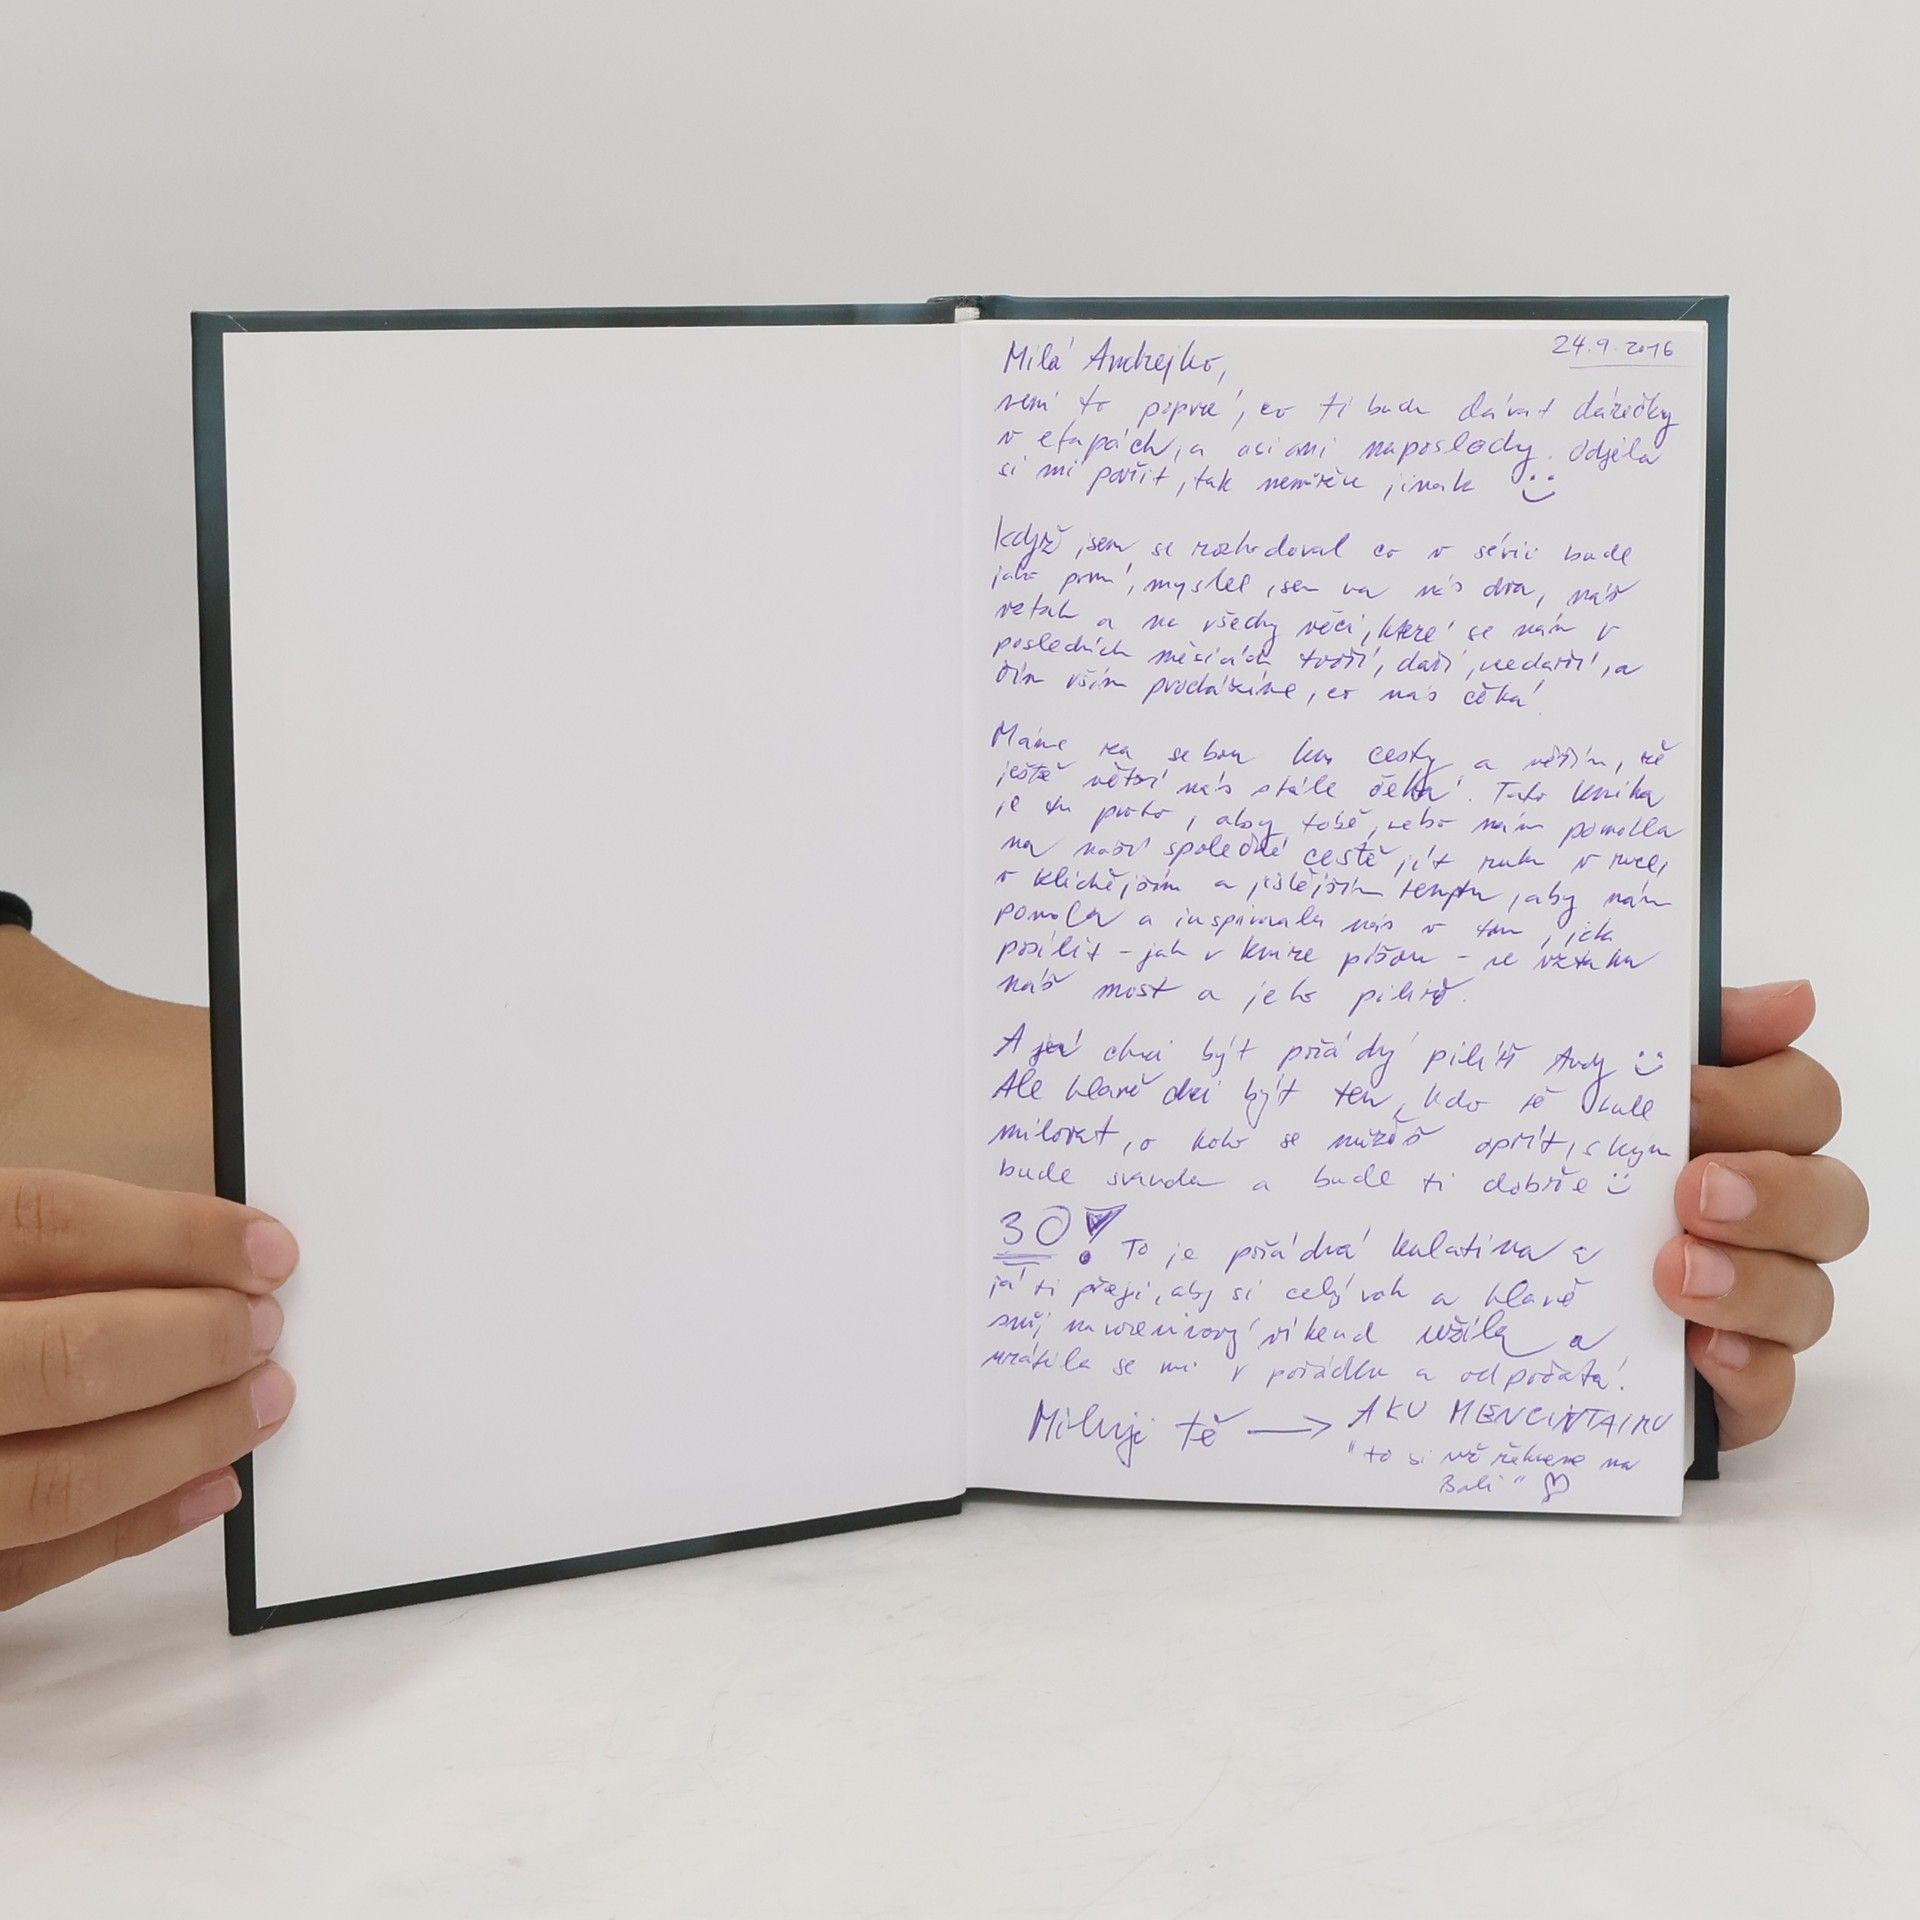 24.9.2016
Milá Andrejko,
není to poprvé, co ti budu dávat dárečky
v etapách, a asi ani naposledy. Odjela
si mi pařit, tak nemůžu jinak
Když jsem se rozhodoval co v sérii bude
jako první, myslel jsem na nás dva, náš
vztah a na všechy věci, které se nám v
posledních měsících tvoří, daří, nedaří, a
čím vším procházíme, co nás čeká!
Máme za sebou kus cesty a věřím, že
ještě větší nás stále čeká. Tato kniha
je tu proto, aby tobě, nebo nám pomohla
na naší společné cestě jít ruku v ruce,
v klidnějším a jistějším tempu, aby nám
pomohla a inspirovala nás v tom, jak
posílit - jak v knize píšou - ve vztahu
náš most a jeho pilíře.
A já chci být pořádný pilíř Andy
Ale hlavě chci být ten, kdo tě bude
milovat, o koho se můžeš opřít, s kým
bude sranda a bude ti dobře
30! To je pořádná kulatina a
já ti přeji, aby si celý rok a hlavě
svůj narozeninový víkend užila a
vrátila se mi v pořádku a odpočatá!
Miluji tě → AKU MENCINTAIMU
"to si už řekneme na
Bali"